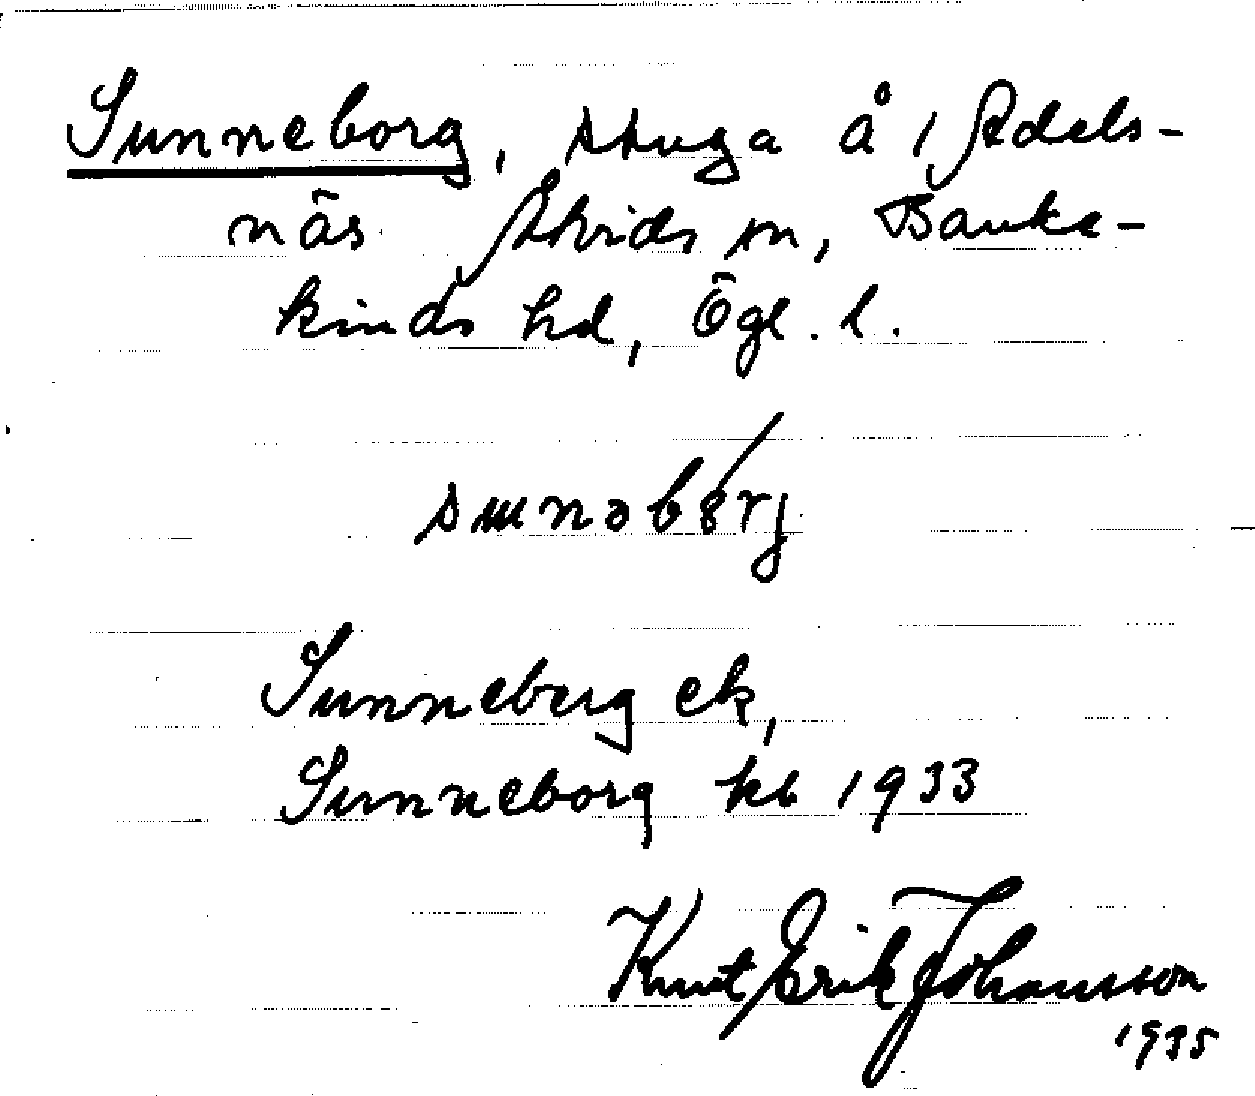 Sunneborg, stuga å 1 Adels-
näs Åtvids sn, Banke-
kinds hd, Ögl. l.
Sunneberg ek,
Sunneborg kb 1933
Knut Erik Johansson
1935